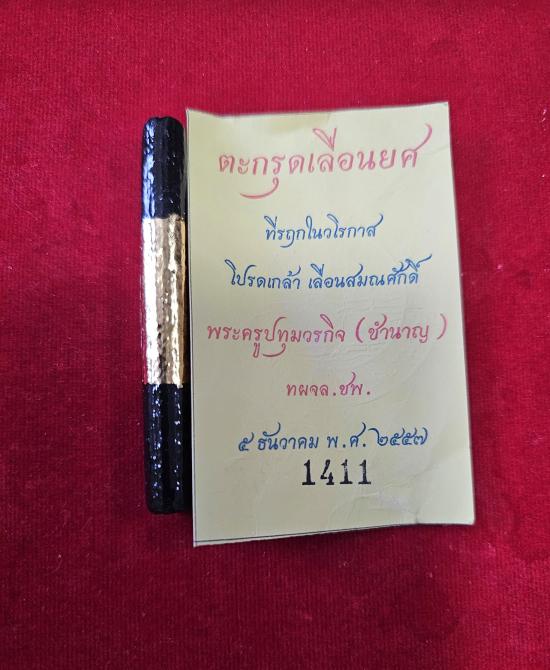 ตะกรุดเลื่อนยศ
ที่รฤกในวโรกาส
โปรดเกล้า เลื่อนสมณศักดิ์
พระครูปทุมวรกิจ (ชำนาญ)
ทผจล.ชพ.
๕ ธันวาคม พ.ศ. ๒๕๕๗
1411